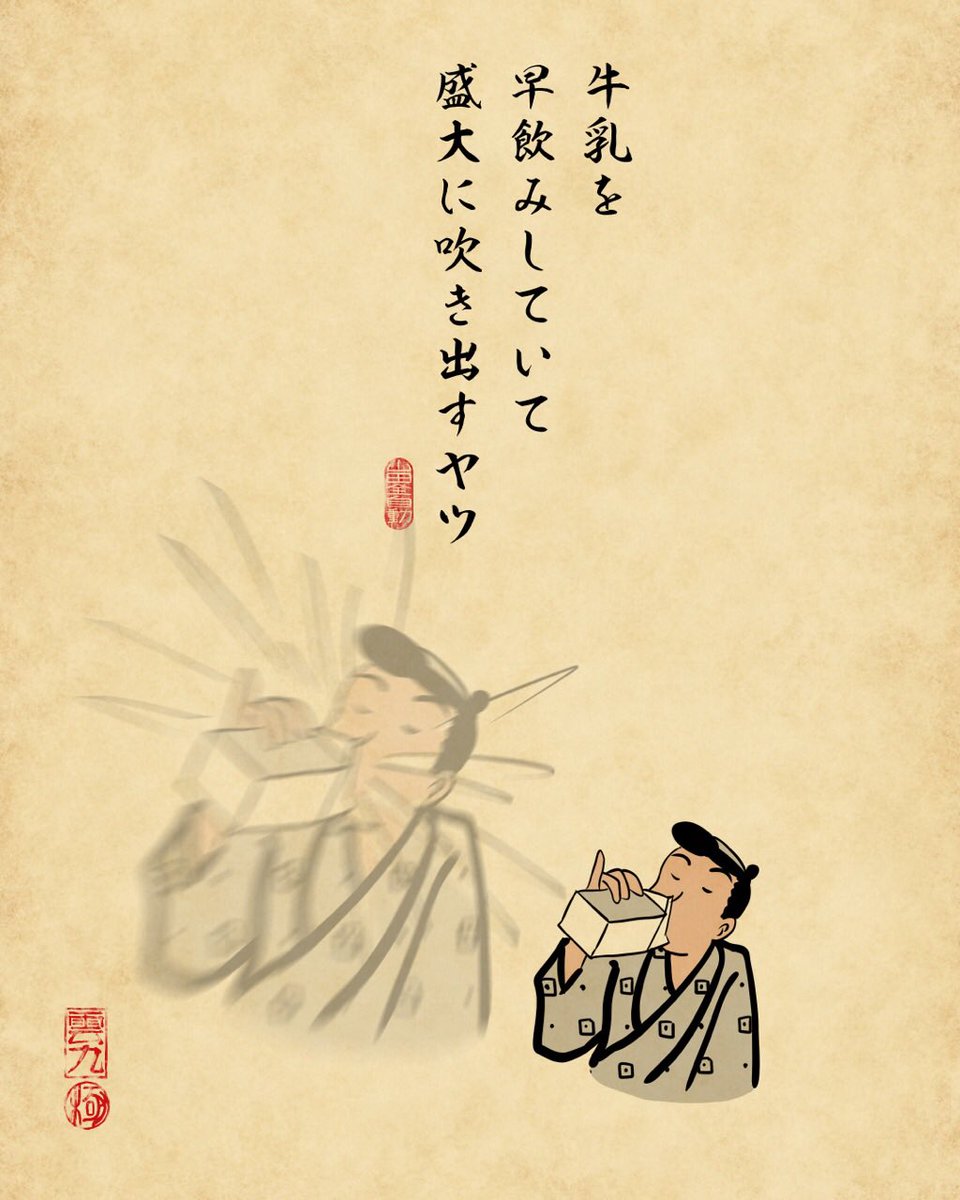 牛乳を
早飲みしていて
盛大に吹き出すヤツ
雲九
極